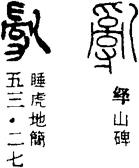 绎山碑
睡虎地簡
五三·二七